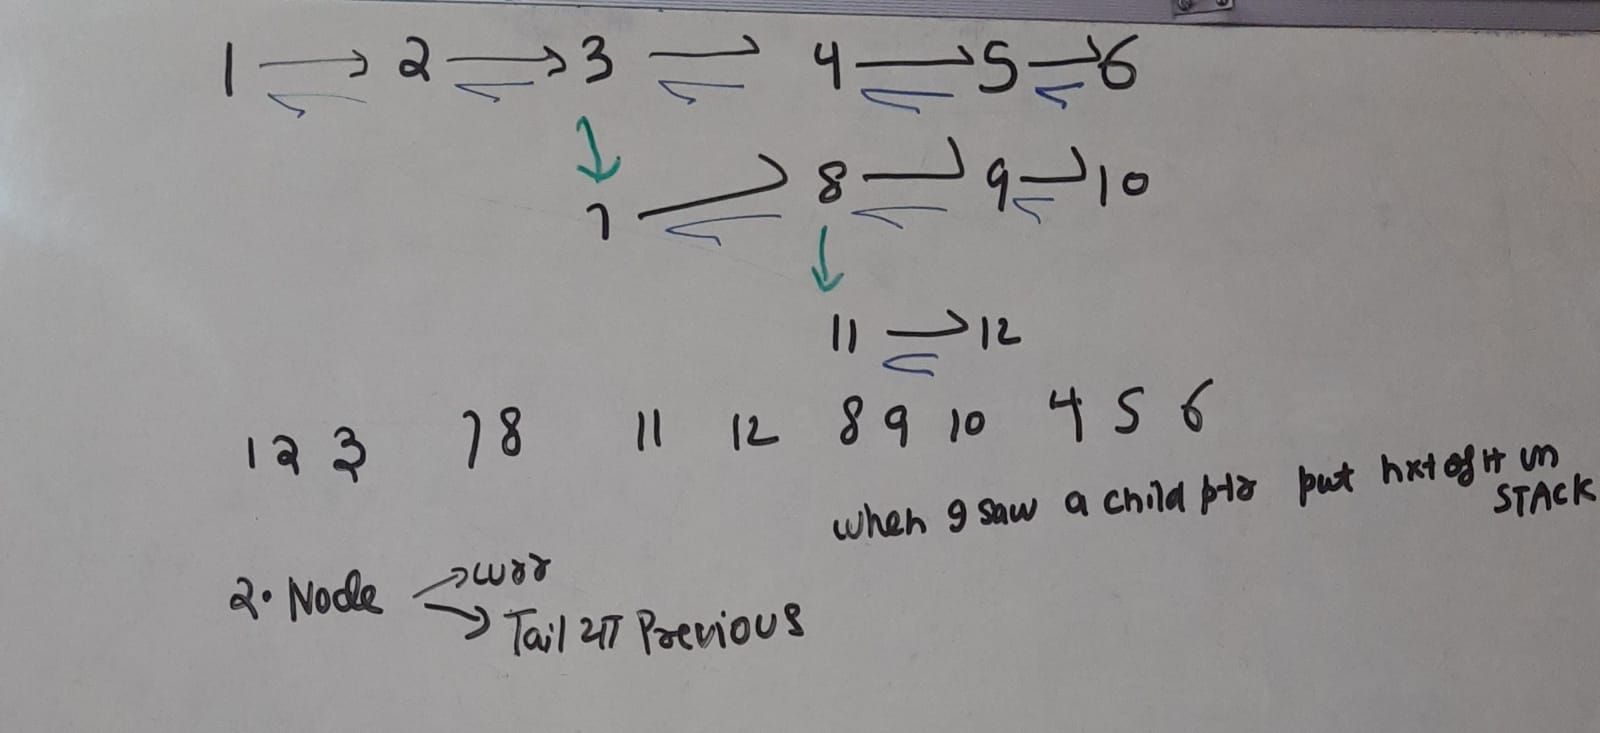 1 2 3 4 5 6
7 8 9 10
11 12
1 2 3 7 8 11 12 8 9 10 4 5 6
when I saw a child ptr put nxt of it in
STACK
2. Node curr
Tail या Previous